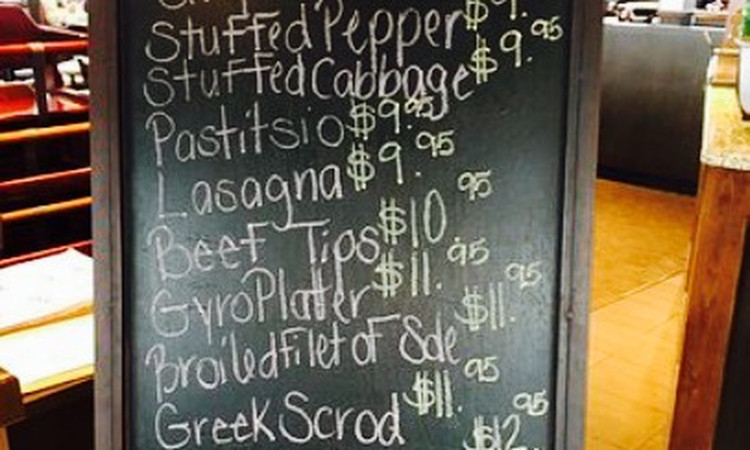 Stuffed Pepper $9.
Stuffed Cabbage $9.95
Pastitsio $9.95
Lasagna $9.95
Beef Tips $10.95
Gyro Platter $11.95
Broiled filet of Sole $11.95
Greek Scrod $11.95
$12.95